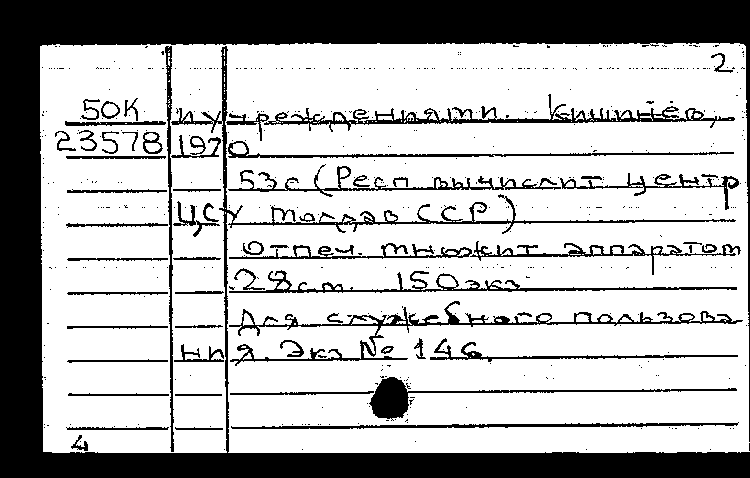 2
50К и учреждениями. Кишинёв,
23578 1970.
53с (Респ вычислит центр
ЦСУ Молдав ССР)
Отпеч. множит аппаратом
28см. 150экз
Для служебного пользова
ния. Экз № 146.
4